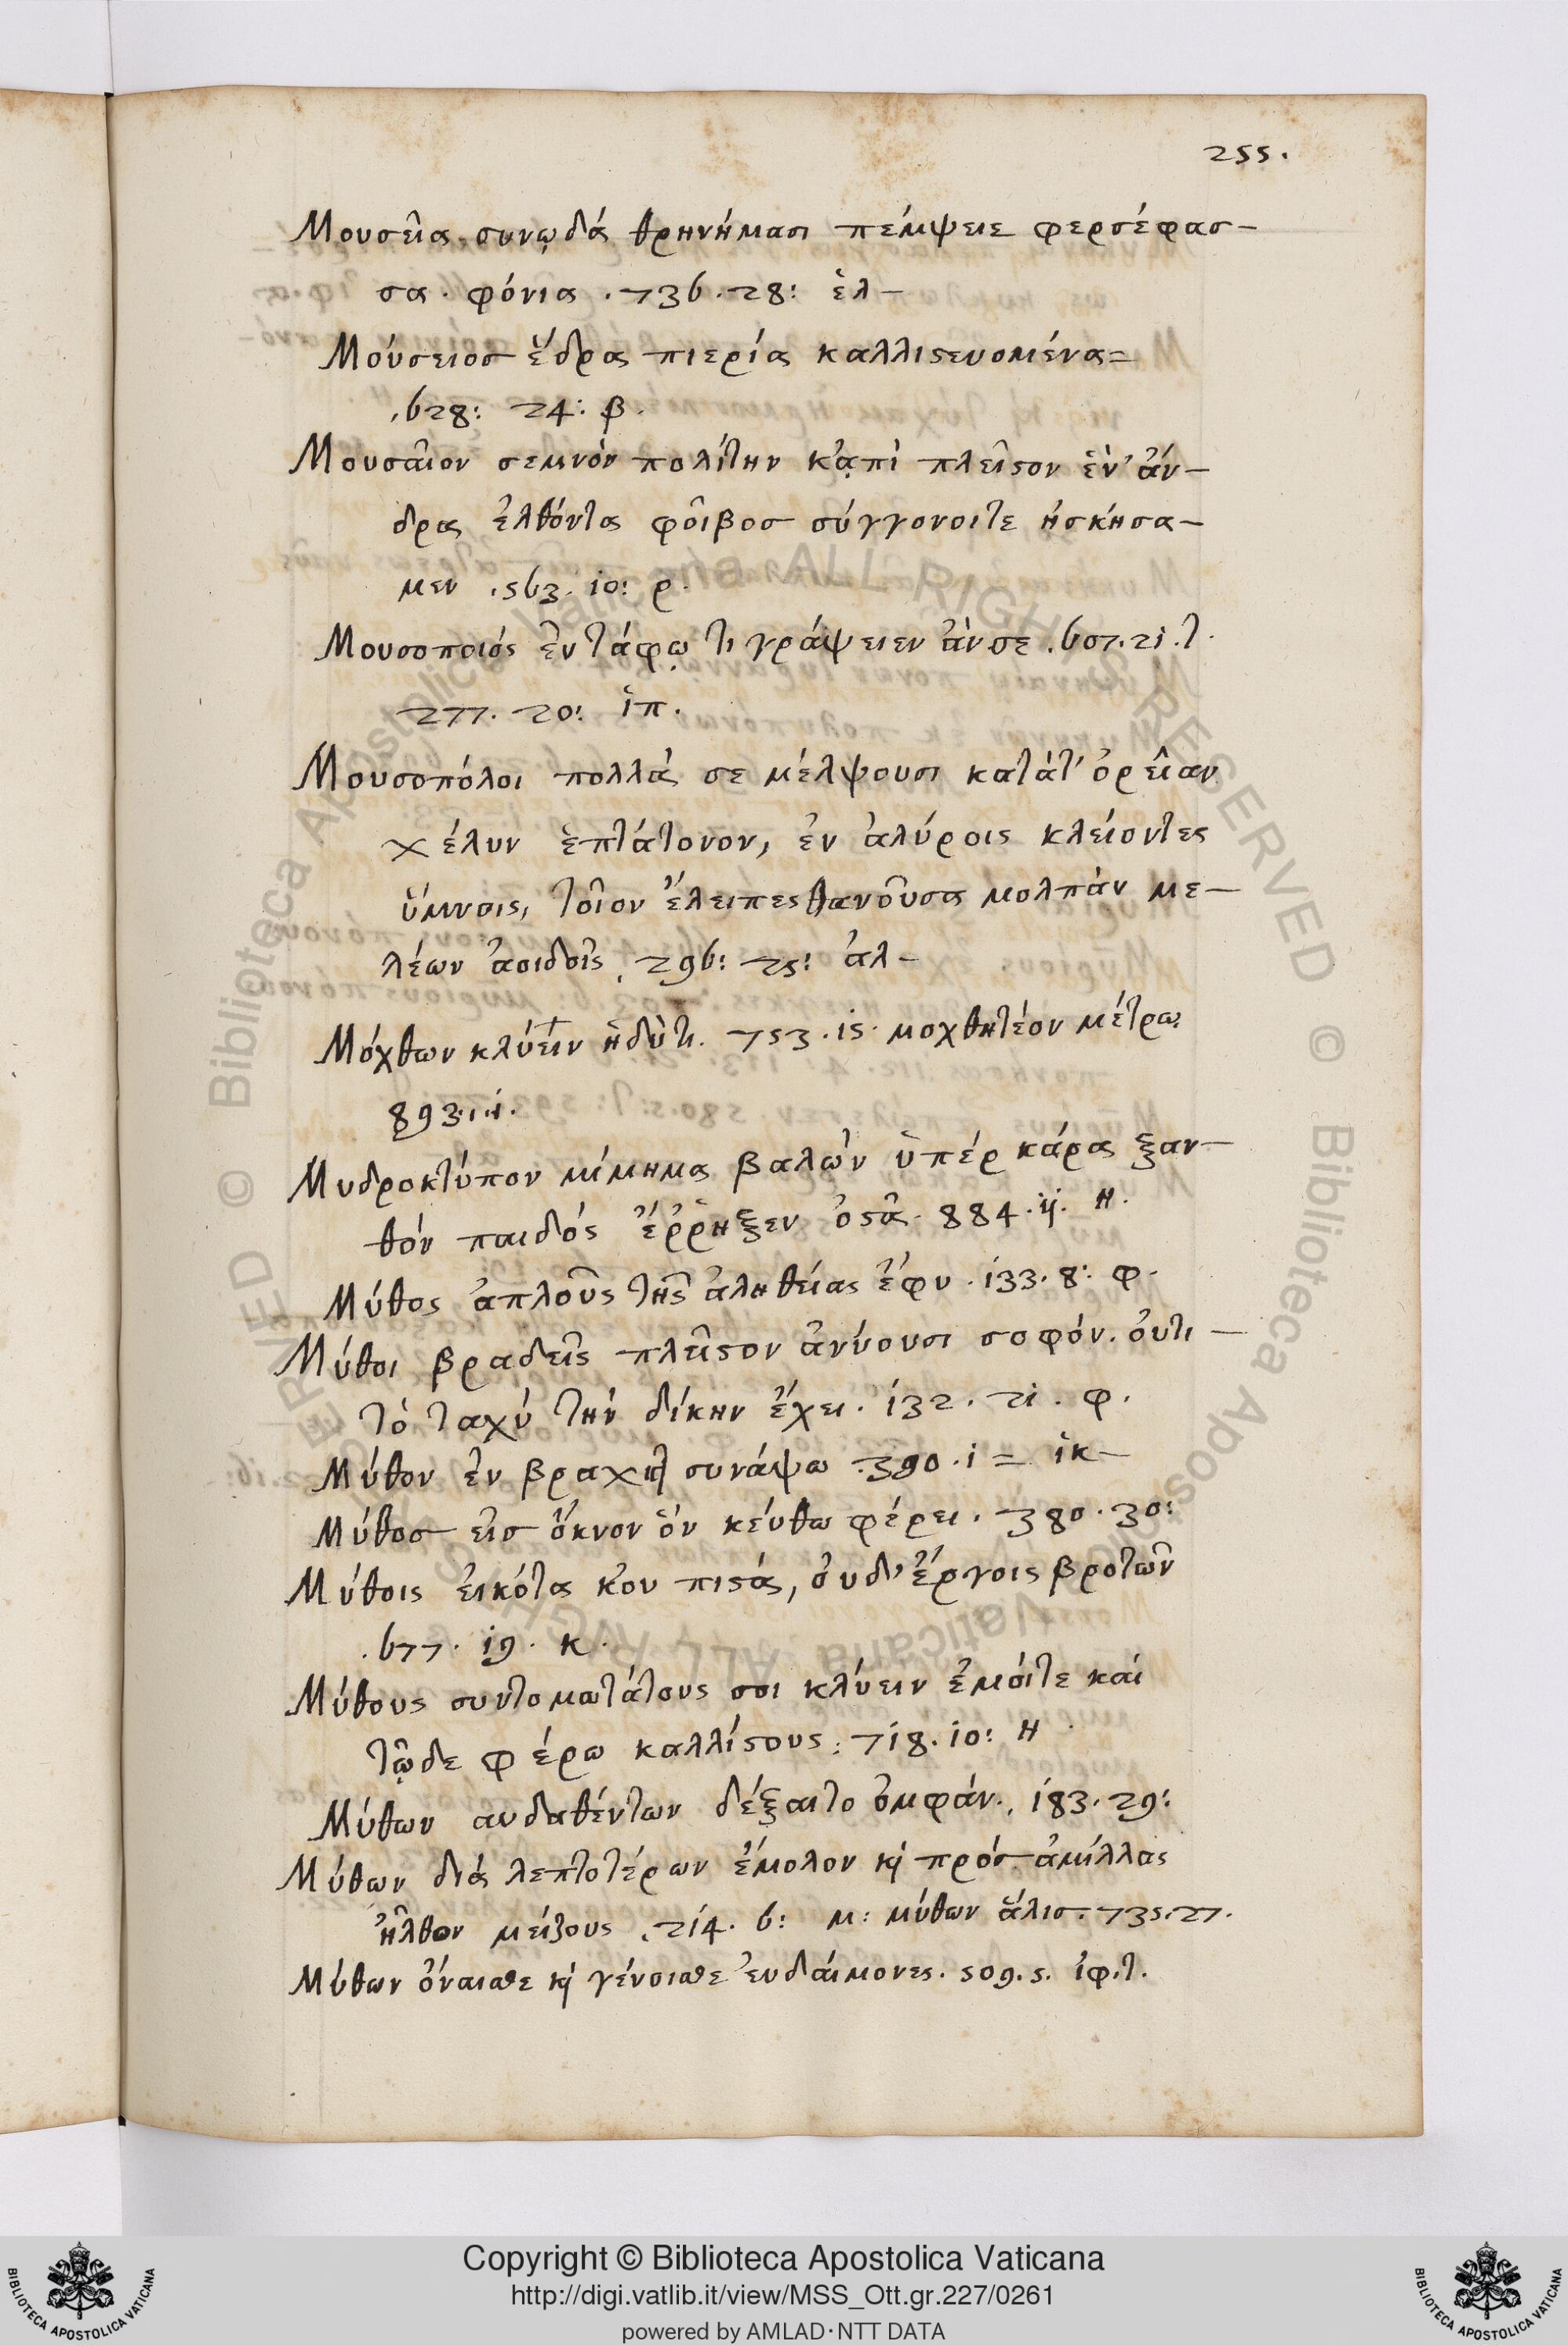 255.
Μουσεῖα συνῳδά θρηνήμασι πέμψειε φερσέφασ-
σα. φόνια . 736 . 28: ἑλ-
Μούσειοσ ἕδρα πιερία καλλιϛευομένα=
.628: 24: β.
Μουσαῖον σεμνόν πολίτην κᾀπὶ πλεῖϛον ἑν' ἄν-
δρα ἐλθόντα φοῖβοσ σύγγονοιτε ἠσκήσα-
μεν . 563. 10: ρ.
Μουσοποιός ἐν τάφῳ τι γράψειεν ἄν σε . 607. 21. τ.
277. 20: ἱπ.
Μουσοπόλοι πολλά σε μέλψουσι κατάτ' ὀρεῖαν
χέλυν ἑπτάτονον, ἐν ἀλύροις κλείοντες
ὕμνοις, τοῖον ἔλειπες θανοῦσα μολπάν με-
λέων ἀοιδοῖς . 296: 25: ἀλ-
Μόχθων κλύειν ἡδύτι. 753. 15. μοχθητέον μέτρῳ
893. 11.
Μυδροκτύπον μίμημα βαλών ὑπέρ κάρα ξαν-
θόν παιδός ἔῤῥηξεν ὀϛᾶ. 884. 11. η.
Μύθος ἁπλοῦς τῆς ἀληθείας ἔφυ . 133. 8: φ.
Μύθοι βραδεῖς πλεῖϛον ἀνύουσι σοφόν. ὄυτι-
τό ταχύ τήν δίκην ἔχει . 132. 21. φ.
Μύθον ἐν βραχεῖ συνάψω . 390. 1 = ἱκ-
Μύθοσ εἰσ ὄκνον ὅν κεύθω φέρει . 380. 30:
Μύθοις ἐικότα κ'ου πιϛά, ὀυδ' ἔργοις βροτῶν
. 677. 19. κ.
Μύθους συντομωτάτους σοι κλύειν ἐμόιτε καί
τῷδε φέρω καλλίϛους : 718. 10: η
Μύθων αυδαθέντων δέξαιτο ὀμφάν. 183. 29:
Μύθων διά λεπτοτέρων ἔμολον κϳ πρόσ ἁμίλλας
ἦλθον μείζους . 214. 6: μ: μύθων ἅλισ. 735. 27.
Μύθων ὄναισθε κϳ γένοισθε ἐυδάιμονες. 509. 5. ἰφ. τ.
Copyright © Biblioteca Apostolica Vaticana
http://digi.vatlib.it/view/MSS_Ott.gr.227/0261
powered by AMLAD·NTT DATA